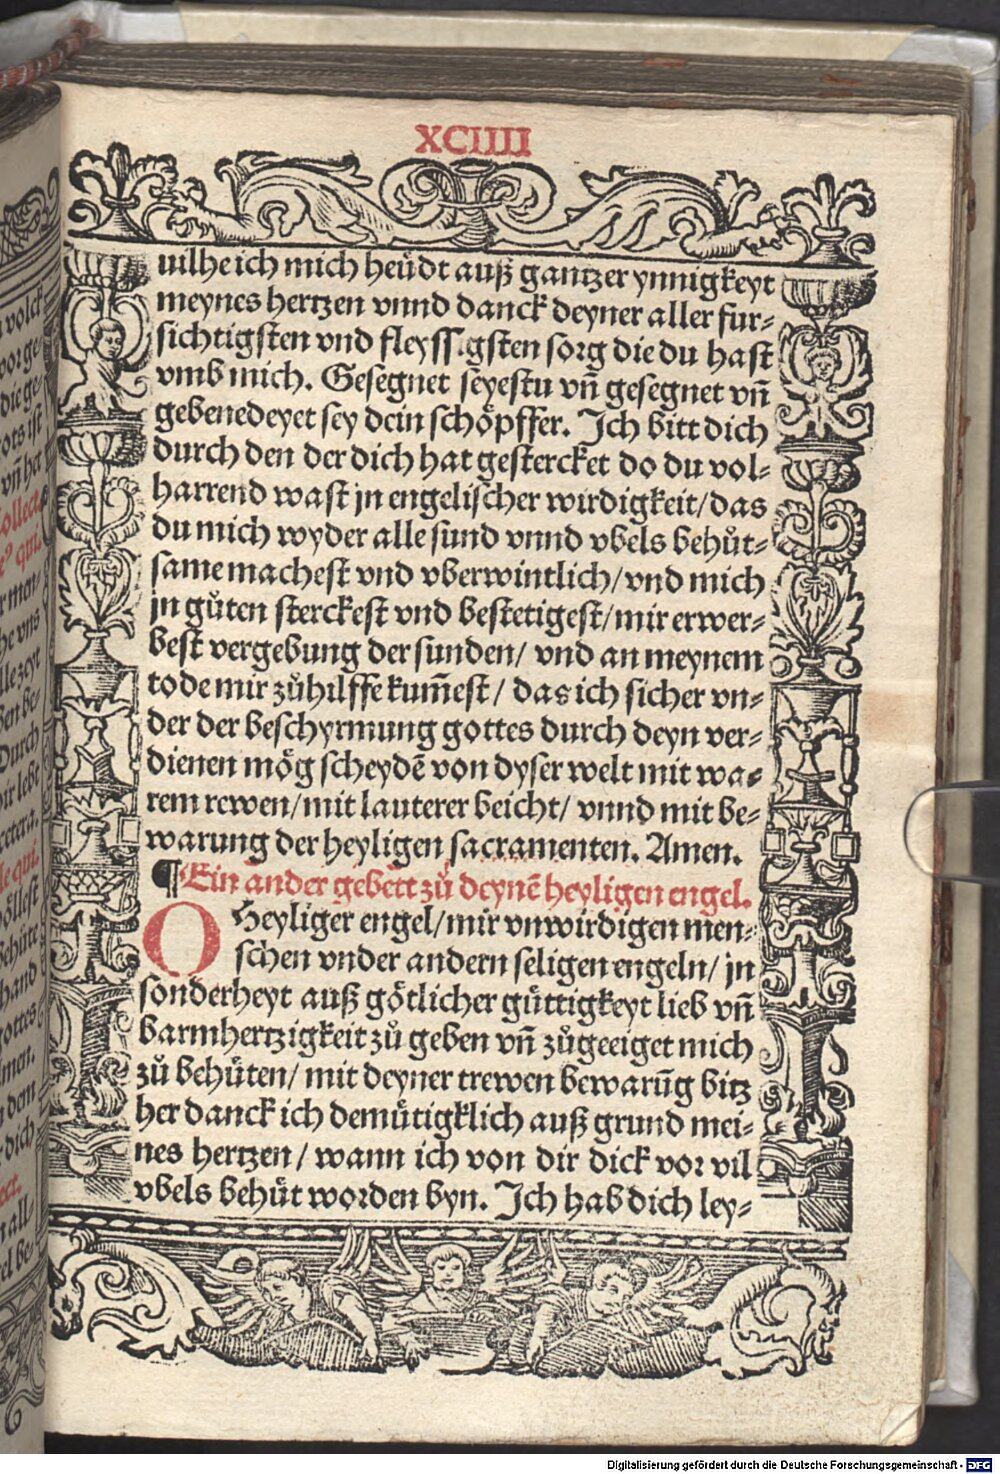 XCIIII
uilhe ich mich heüdt auß gantzer ynnigkeyt
meynes hertzen vnnd danck deyner aller fur⸗
sichtigsten vnd fleyss.gsten sorg die du hast
vmb mich. Gesegnet seyestu vn̄ gesegnet vn̄
gebenedeyet sey dein schöpffer. Ich bitt dich
durch den der dich hat gestercket do du vol⸗
harrend wast jn engelischer wirdigkeit/das
du mich wyder alle sund vnnd vbels behůt⸗
same machest vnd vberwintlich/vnd mich
jn gůten sterckest vnd bestetigest/mir erwer⸗
best vergebung der sunden/ vnd an meynem
tode mir zůhilffe kum̄est/ das ich sicher vn⸗
der der beschyrmung gottes durch deyn ver⸗
dienen mög scheydē von dyser welt mit wa⸗
rem rewen/mit lauterer beicht/ vnnd mit be⸗
warung der heyligen sacramenten. Amen.
¶Ein ander gebett zů deynē heyligen engel.
O Heyliger engel/mir vnwirdigen men⸗
schen vnder andern seligen engeln/ jn
sonderheyt auß götlicher güttigkeyt lieb vn̄
barmhertzigkeit zů geben vn̄ zůgeeiget mich
zů behüten/ mit deyner trewen bewarūg bitz
her danck ich demütigklich auß grund mei⸗
nes hertzen/ wann ich von dir dick vor vil
vbels behüt worden byn. Ich hab dich ley⸗
volck
vor ge
die ge
ots ist
vn̄ her
Collect.
qui.
men⸗
he vns
lle zeyt
ben be⸗
Durch
ir lebt
cetera.
le qui.
öllest
behüte
hand
gottes
men.
dem
dich
ect.
all⸗
el be⸗
Digitalisierung gefördert durch die Deutsche Forschungsgemeinschaft - DFG